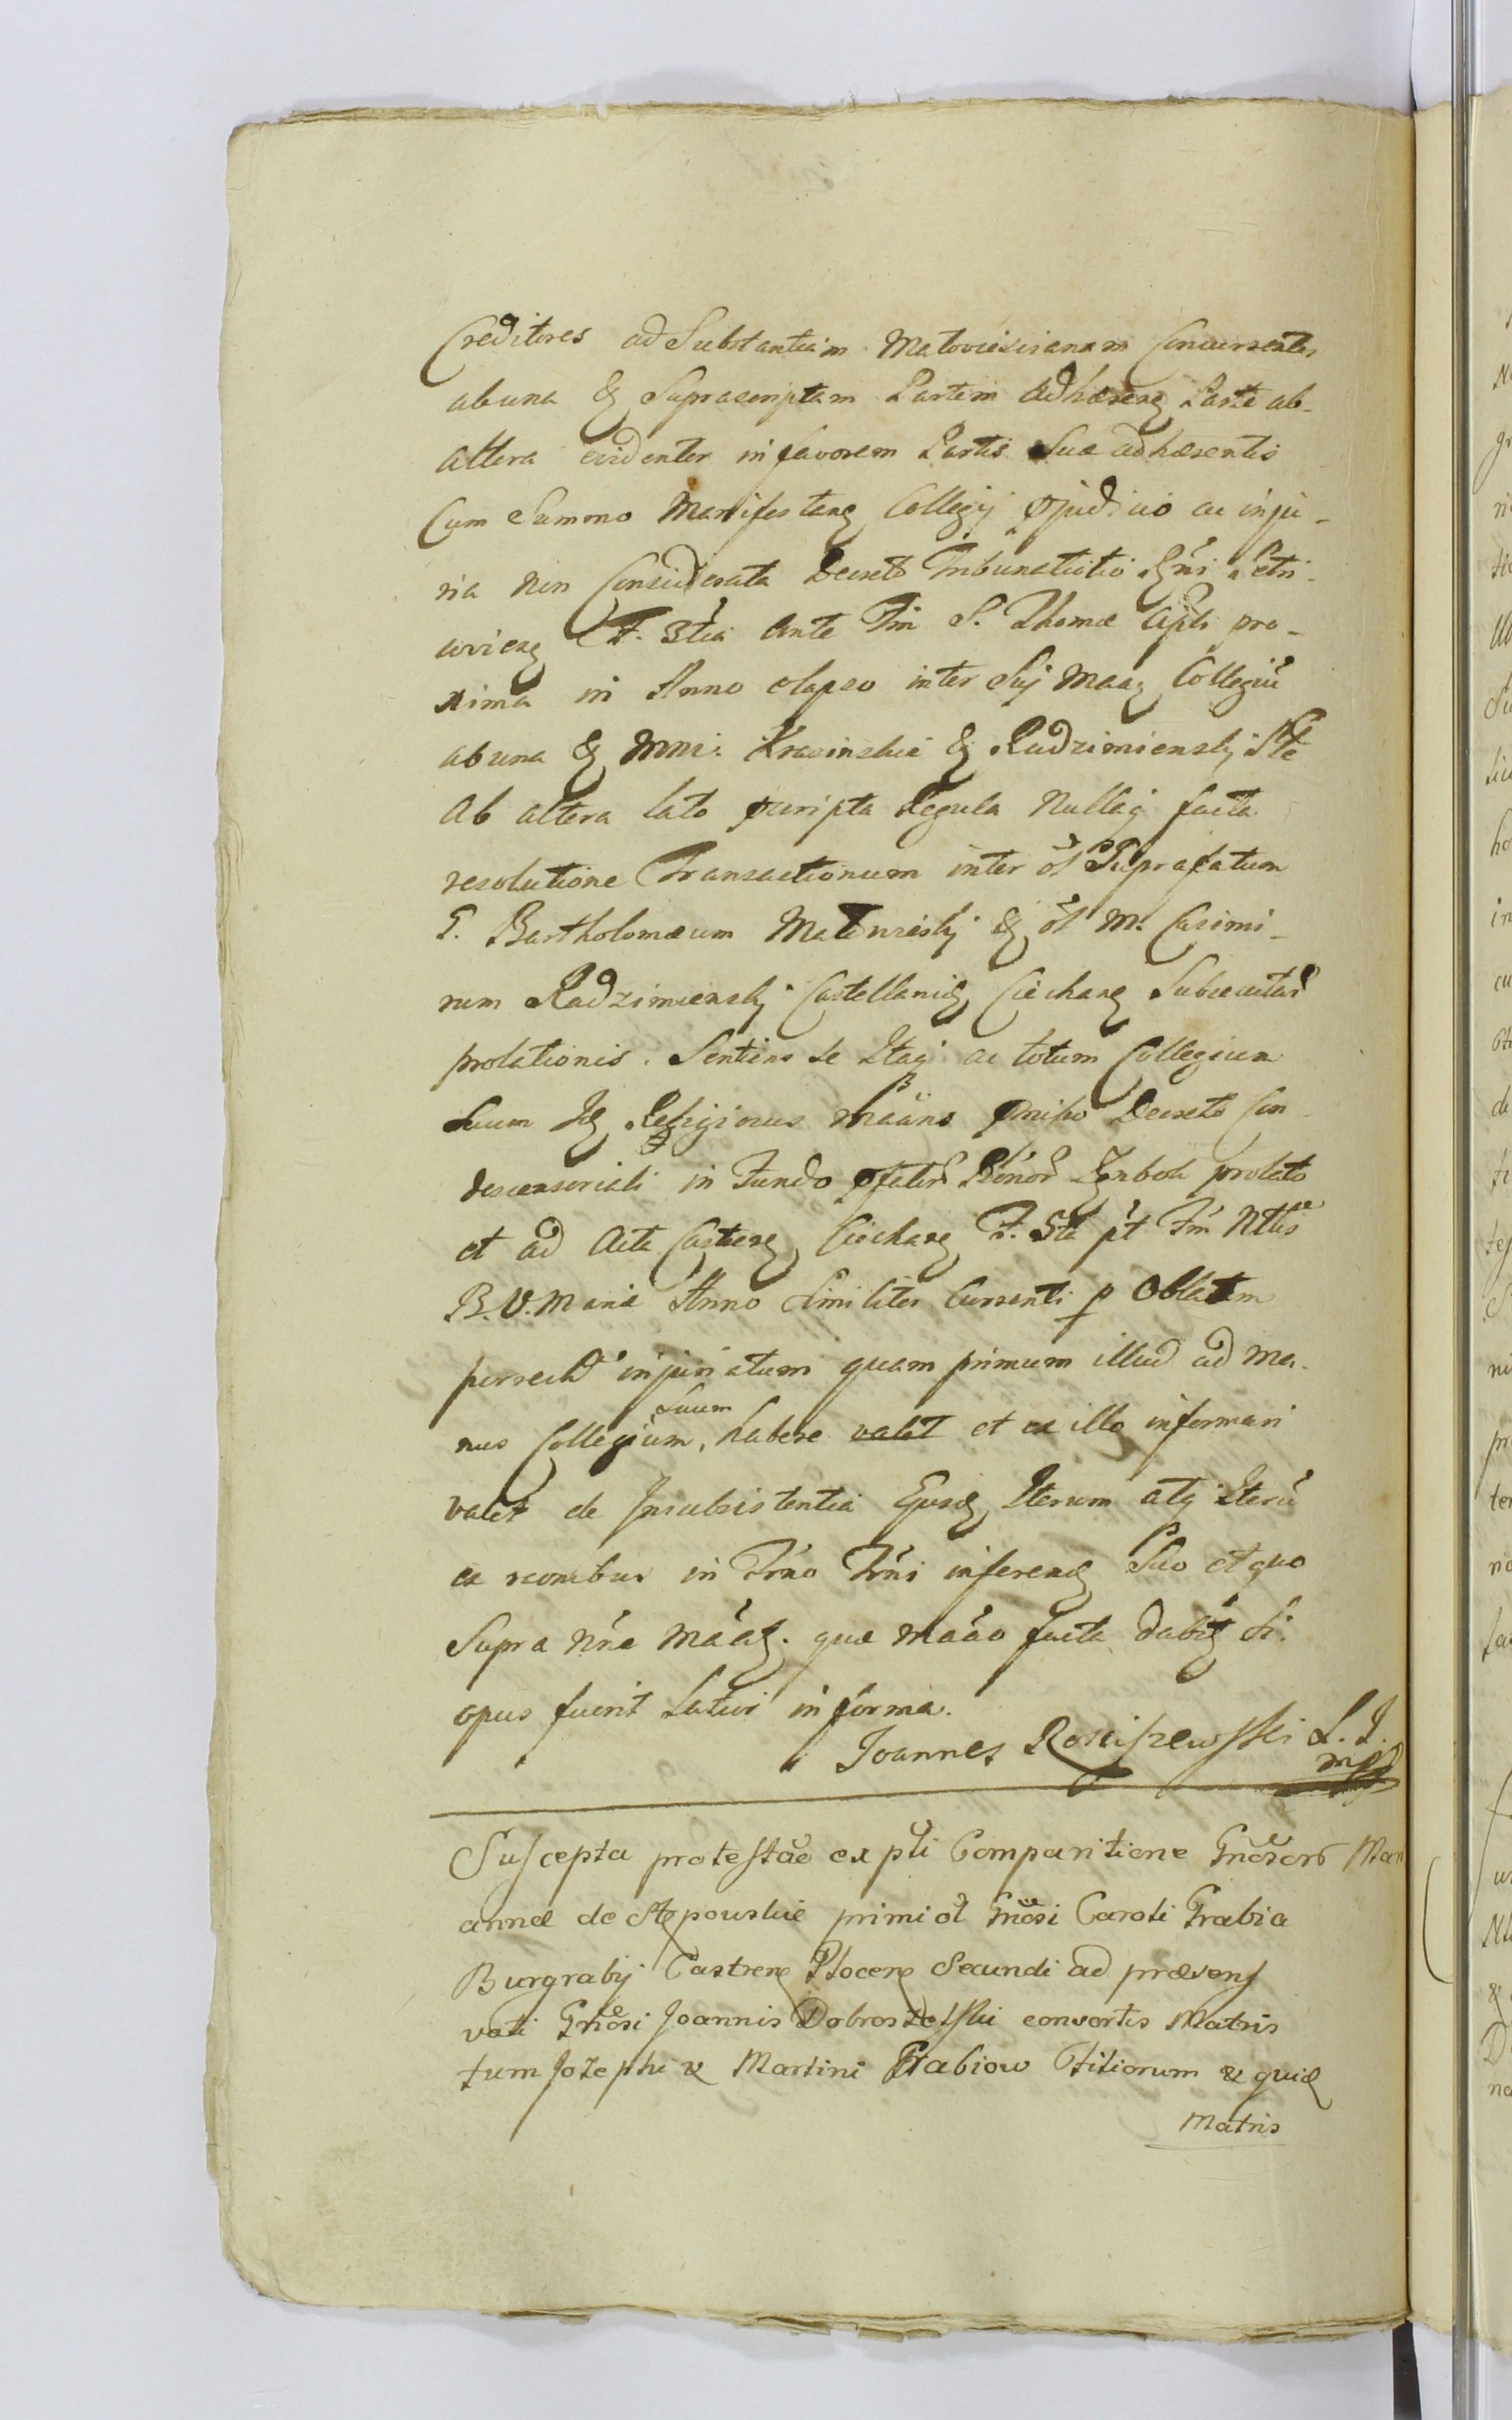 Creditores ad Substantiam Matowiesianam Concurrentes
ab una & Suprascriptam Partem adhæreñ Parte ab-
altera evidenter in favorem Partis Suæ adhærentis
Cum Summo Manifestanẽ Collegij pjudicio ac inju-
ria non Considerata Decreto Tribunalitio Rgni Petri-
covieñ F. 3tia Ante Fm S. Thomæ Apli pro-
xima in Anno elapso inter Sui Maañ Collegiũ
ab una & Mm: Krasinskie & Radzimiensky Pte
Ab altera lato pscripta Regula Nullaq facta
resolutione Transactionum inter ol Suprafatum
G. Bartholomæum Matowiesky & ol M. Casimi-
rum Radzimiensky Castellanid Ciechañ Subsecutar
prolationis. Sentiens se Itaq ac totum Collegium
Suum Id Religiosus maãns pmisso Decreto Con-
descensoriali in Fundo pfator Bonor prolato
et ad Acta Castreñ Ciechañ F. 5ta pt Fm Ntis
B. V. Mariæ Anno Similiter Currenti p Oblatam
perrecto injuriatum quam primum illud ad Ma-
nus Collegium Suum, habere valet et ex illo informari
valet de Insubsistentia Ejusd Iterum atq Iterũ
ex rãonibus in Trno Trni inferend Suo et quo
Supra Nne Maãt. quæ maão facta dabit Si
opus fuerit latior in forma.
Joannes Rosciszewski S. J.
mp
Suscepta protestão ex psti Comparitione Gñosor Mari
annæ de Stępouskie primi ol Gñosi Caroli Grabia
Burgrabij Castreñ Plocenę Secundi ad præsens
voti Gñosi Joannis Dobrosielski consortis Matris
tum Josephi & Martini Grabiow Filiorum & quid
Matris